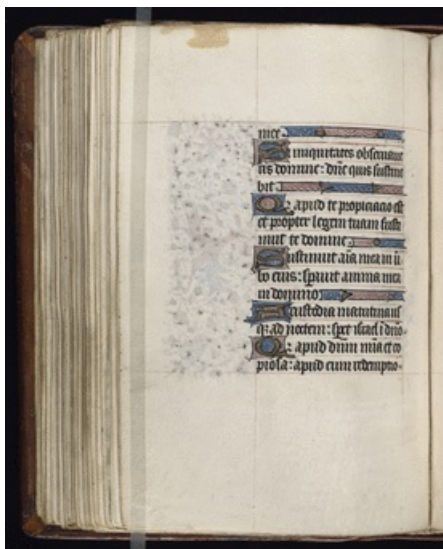 mee
Si iniquitates observave
ris domine : dñe quis sustine
bit
Q̄ apud te propiciacio est
et propter legem tuam susti
nui te domine
Sustinuit aīa mea in ū
bo eius : speravit anima mea
in domino
A custodia matutina us
q̄ ad noctem : speret israel ī dño
Q̄ apud dñm mīa et co
piosa : apud eum redemptio